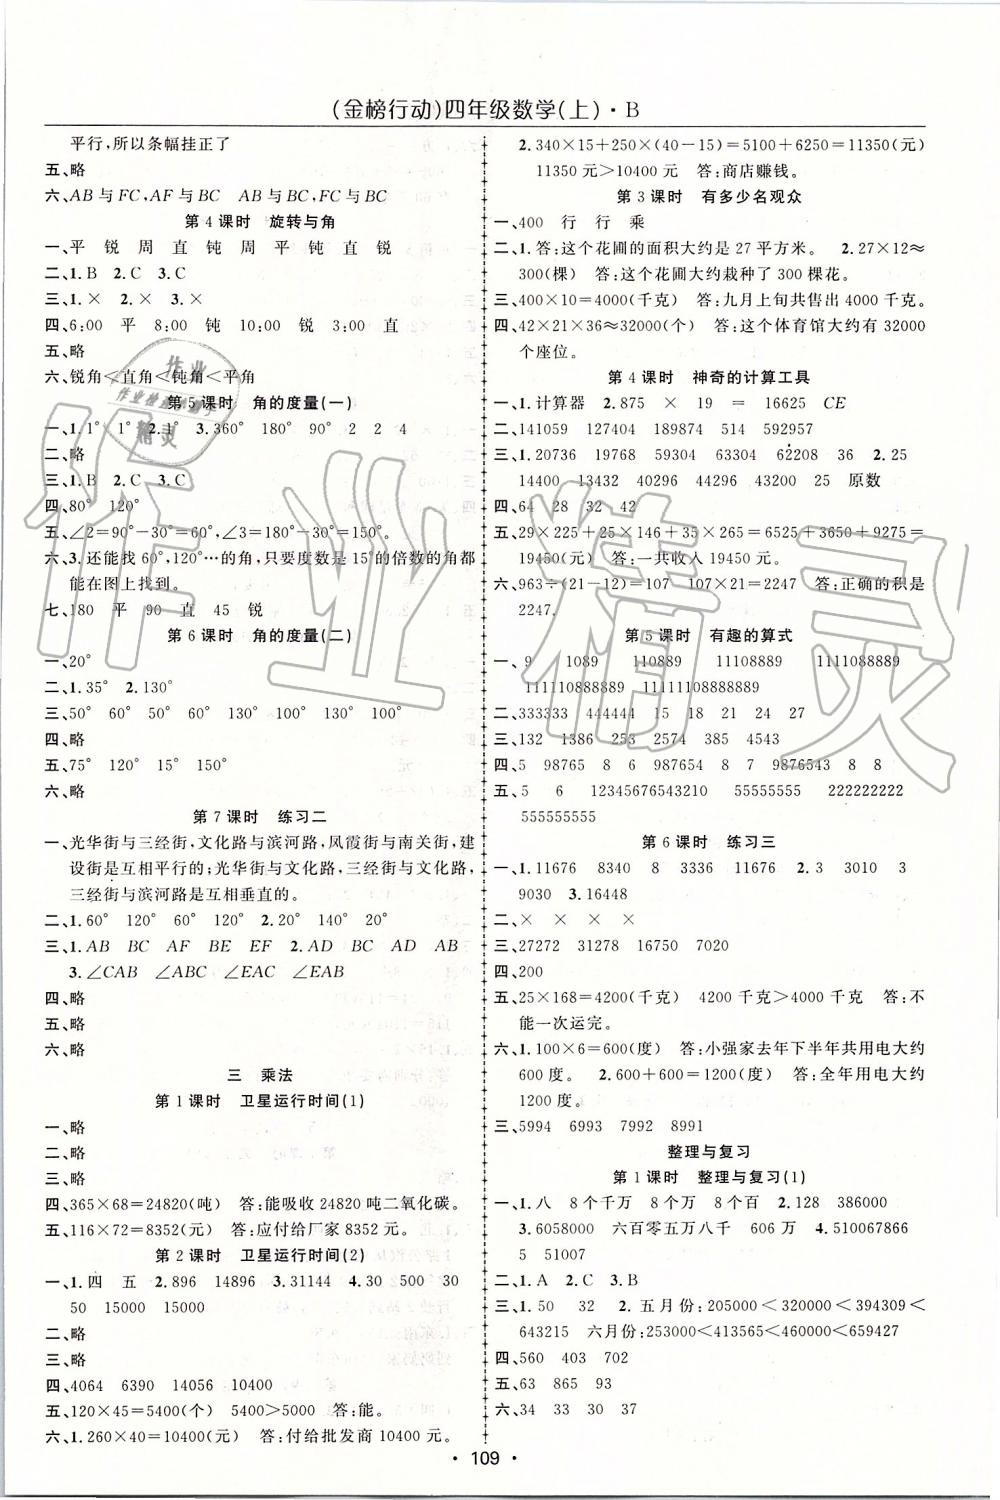 (金榜行动)四年级数学(上)·B
平行,所以条幅挂正了
五、略
六、AB与FC,AF与BC AB与BC,FC与BC
第4课时 旋转与角
一、平 锐 周 直 钝 周 平 钝 直 锐
二、1.B 2.C 3.C
三、1.× 2.× 3.×
四、6:00 平 8:00 钝 10:00 锐 3:00 直
五、略
六、锐角<直角<钝角<平角
第5课时 角的度量(一)
一、1.1° 1° 2.1° 3.360° 180° 90° 2 2 4
二、略
三、1.B 2.C 3.C
四、80° 120°
五、∠2=90°-30°=60°,∠3=180°-30°=150°。
六、3.还能找60°,120°…的角,只要度数是15°的倍数的角都
能在图上找到。
七、180 平 90 直 45 锐
第6课时 角的度量(二)
一、20°
二、1.35° 2.130°
三、50° 60° 50° 60° 130° 100° 130° 100°
四、略
五、75° 120° 15° 150°
六、略
第7课时 练习二
一、光华街与三经街,文化路与滨河路,风霞街与南关街,建
设街是互相平行的;光华街与文化路,三经街与文化路,
三经街与滨河路是互相垂直的。
二、1.60° 120° 60° 120° 2.20° 140° 20°
三、1.AB BC AF BE EF 2.AD BC AD AB
3.∠CAB ∠ABC ∠EAC ∠EAB
四、略
五、略
六、略
三 乘法
第1课时 卫星运行时间(1)
一、略
二、略
三、略
四、365×68=24820(吨) 答:能吸收24820吨二氧化碳。
五、116×72=8352(元) 答:应付给厂家8352元。
第2课时 卫星运行时间(2)
一、1.四 五 2.896 14896 3.31144 4.30 500 30
50 15000 15000
二、略
三、略
四、4064 6390 14056 10400
五、120×45=5400(个) 5400>5000 答:能。
六、1.260×40=10400(元) 答:付给批发商10400元。
2.340×15+250×(40-15)=5100+6250=11350(元)
11350元>10400元 答:商店赚钱。
第3课时 有多少名观众
一、400 行 行 乘
二、1.答:这个花圃的面积大约是27平方米。 2.27×12≈
300(棵) 答:这个花圃大约栽种了300棵花。
三、400×10=4000(千克) 答:九月上旬共售出4000千克。
四、42×21×36≈32000(个) 答:这个体育馆大约有32000
个座位。
第4课时 神奇的计算工具
一、1.计算器 2.875 × 19 = 16625 CE
二、141059 127404 189874 514 592957
三、1.20736 19768 59304 63304 62208 36 2.25
14400 13432 40257 44290 43200 25 原数
四、64 28 32 42
五、29×225+25×146+35×265=6525+3650+9275=
19450(元) 答:一共收入19450元。
六、963÷(21-12)=107 107×21=2247 答:正确的积是
2247.
第5课时 有趣的算式
一、9 1089 110889 11108889 1111088889
111110888889 11111108888889
二、333333 444444 15 18 21 24 27
三、132 1386 253 2574 385 4543
四、5 98765 8 6 987654 8 7 9876543 8 8
五、5 6 12345676543210 55555555 222222222
555555555
第6课时 练习三
一、1.11676 8340 8 3336 11676 2.3 3010 3
9030 3.16448
二、× × × ×
三、27272 31278 16750 7020
四、200
五、25×168=4200(千克) 4200千克>4000千克 答:不
能一次运完。
六、1.100×6=600(度) 答:小强家去年下半年共用电大约
600度。 2.600+600=1200(度) 答:全年用电大约
1200度。
三、5994 6993 7992 8991
整理与复习
第1课时 整理与复习(1)
一、1.八 8个千万 8个万 8个百 2.128 386000
3.6058000 六百零五万八千 606万 4.510067866
5 51007
二、1.A 2.C 3.B
三、1.50 32 2.五月份:205000<320000<394309<
643215 六月份:253000<413565<460000<659427
四、560 403 702
五、63 865 93
六、34 33 30 37
·109·
作业
作业检查小帮手
精灵
作业精灵